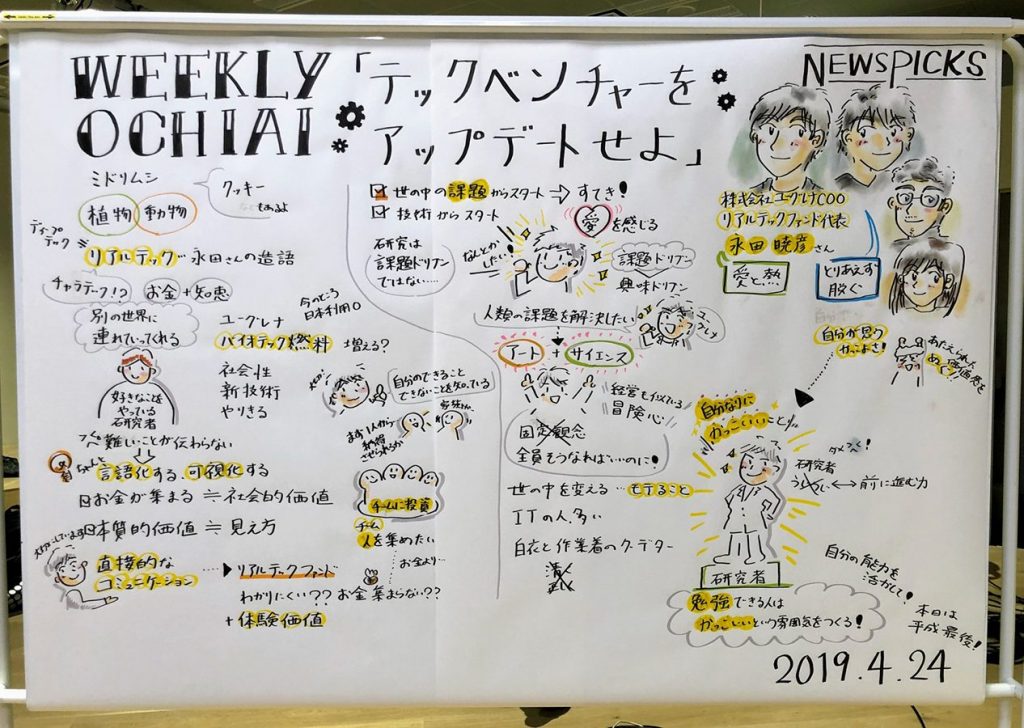 WEEKLY
OCHIAI
「テックベンチャーを
アップデートせよ」
NEWSPICKS
ミドリムシ
クッキー
もあるよ
植物 動物
ディープ
テック
リアルテック 永田さんの造語
チャラテック!?
お金+知恵
別の世界に
連れていってくれる
好きなことを
やっている
研究者
難しいことが伝わらない
ちゃんと 言語化する、可視化する
お金が集まる ≒ 社会的価値
本質的価値 ≒ 見え方
直接的な
コミュニケーション
リアルテックファンド
わかりにくい??
+体験価値
今のところ
日本利用0
ユーグレナ
バイオテック燃料 増える?
社会性
新技術
やりきる
自分のできること
できないことを知っている
まず1人から
チームに投資
チーム
人を集めたい
お金より…
お金集まらない??
世の中の課題からスタート
すてき!
技術からスタート
愛を感じる
研究は
課題ドリブン
ではない……
なんとか
したい!
課題ドリブン
興味ドリブン
人類の課題を解決したい
アート + サイエンス
経営も似ている
冒険心
固定観念
全員そうなればいいのに!
世の中を変える…モテること
ITの人多い
白衣と作業着のクーデター
株式会社ユーグレナCOO
リアルテックファンド代表
永田暁彦さん
愛と熱
とりあえず
脱ぐ
自分が思う
かっこよさ!
自分なりに
かっこいいこと
研究者
↔ 前に進む力
研究者
勉強できる人は
かっこいいという雰囲気をつくる!
自分の能力を
活かして!
本日は
平成最後!
2019.4.24